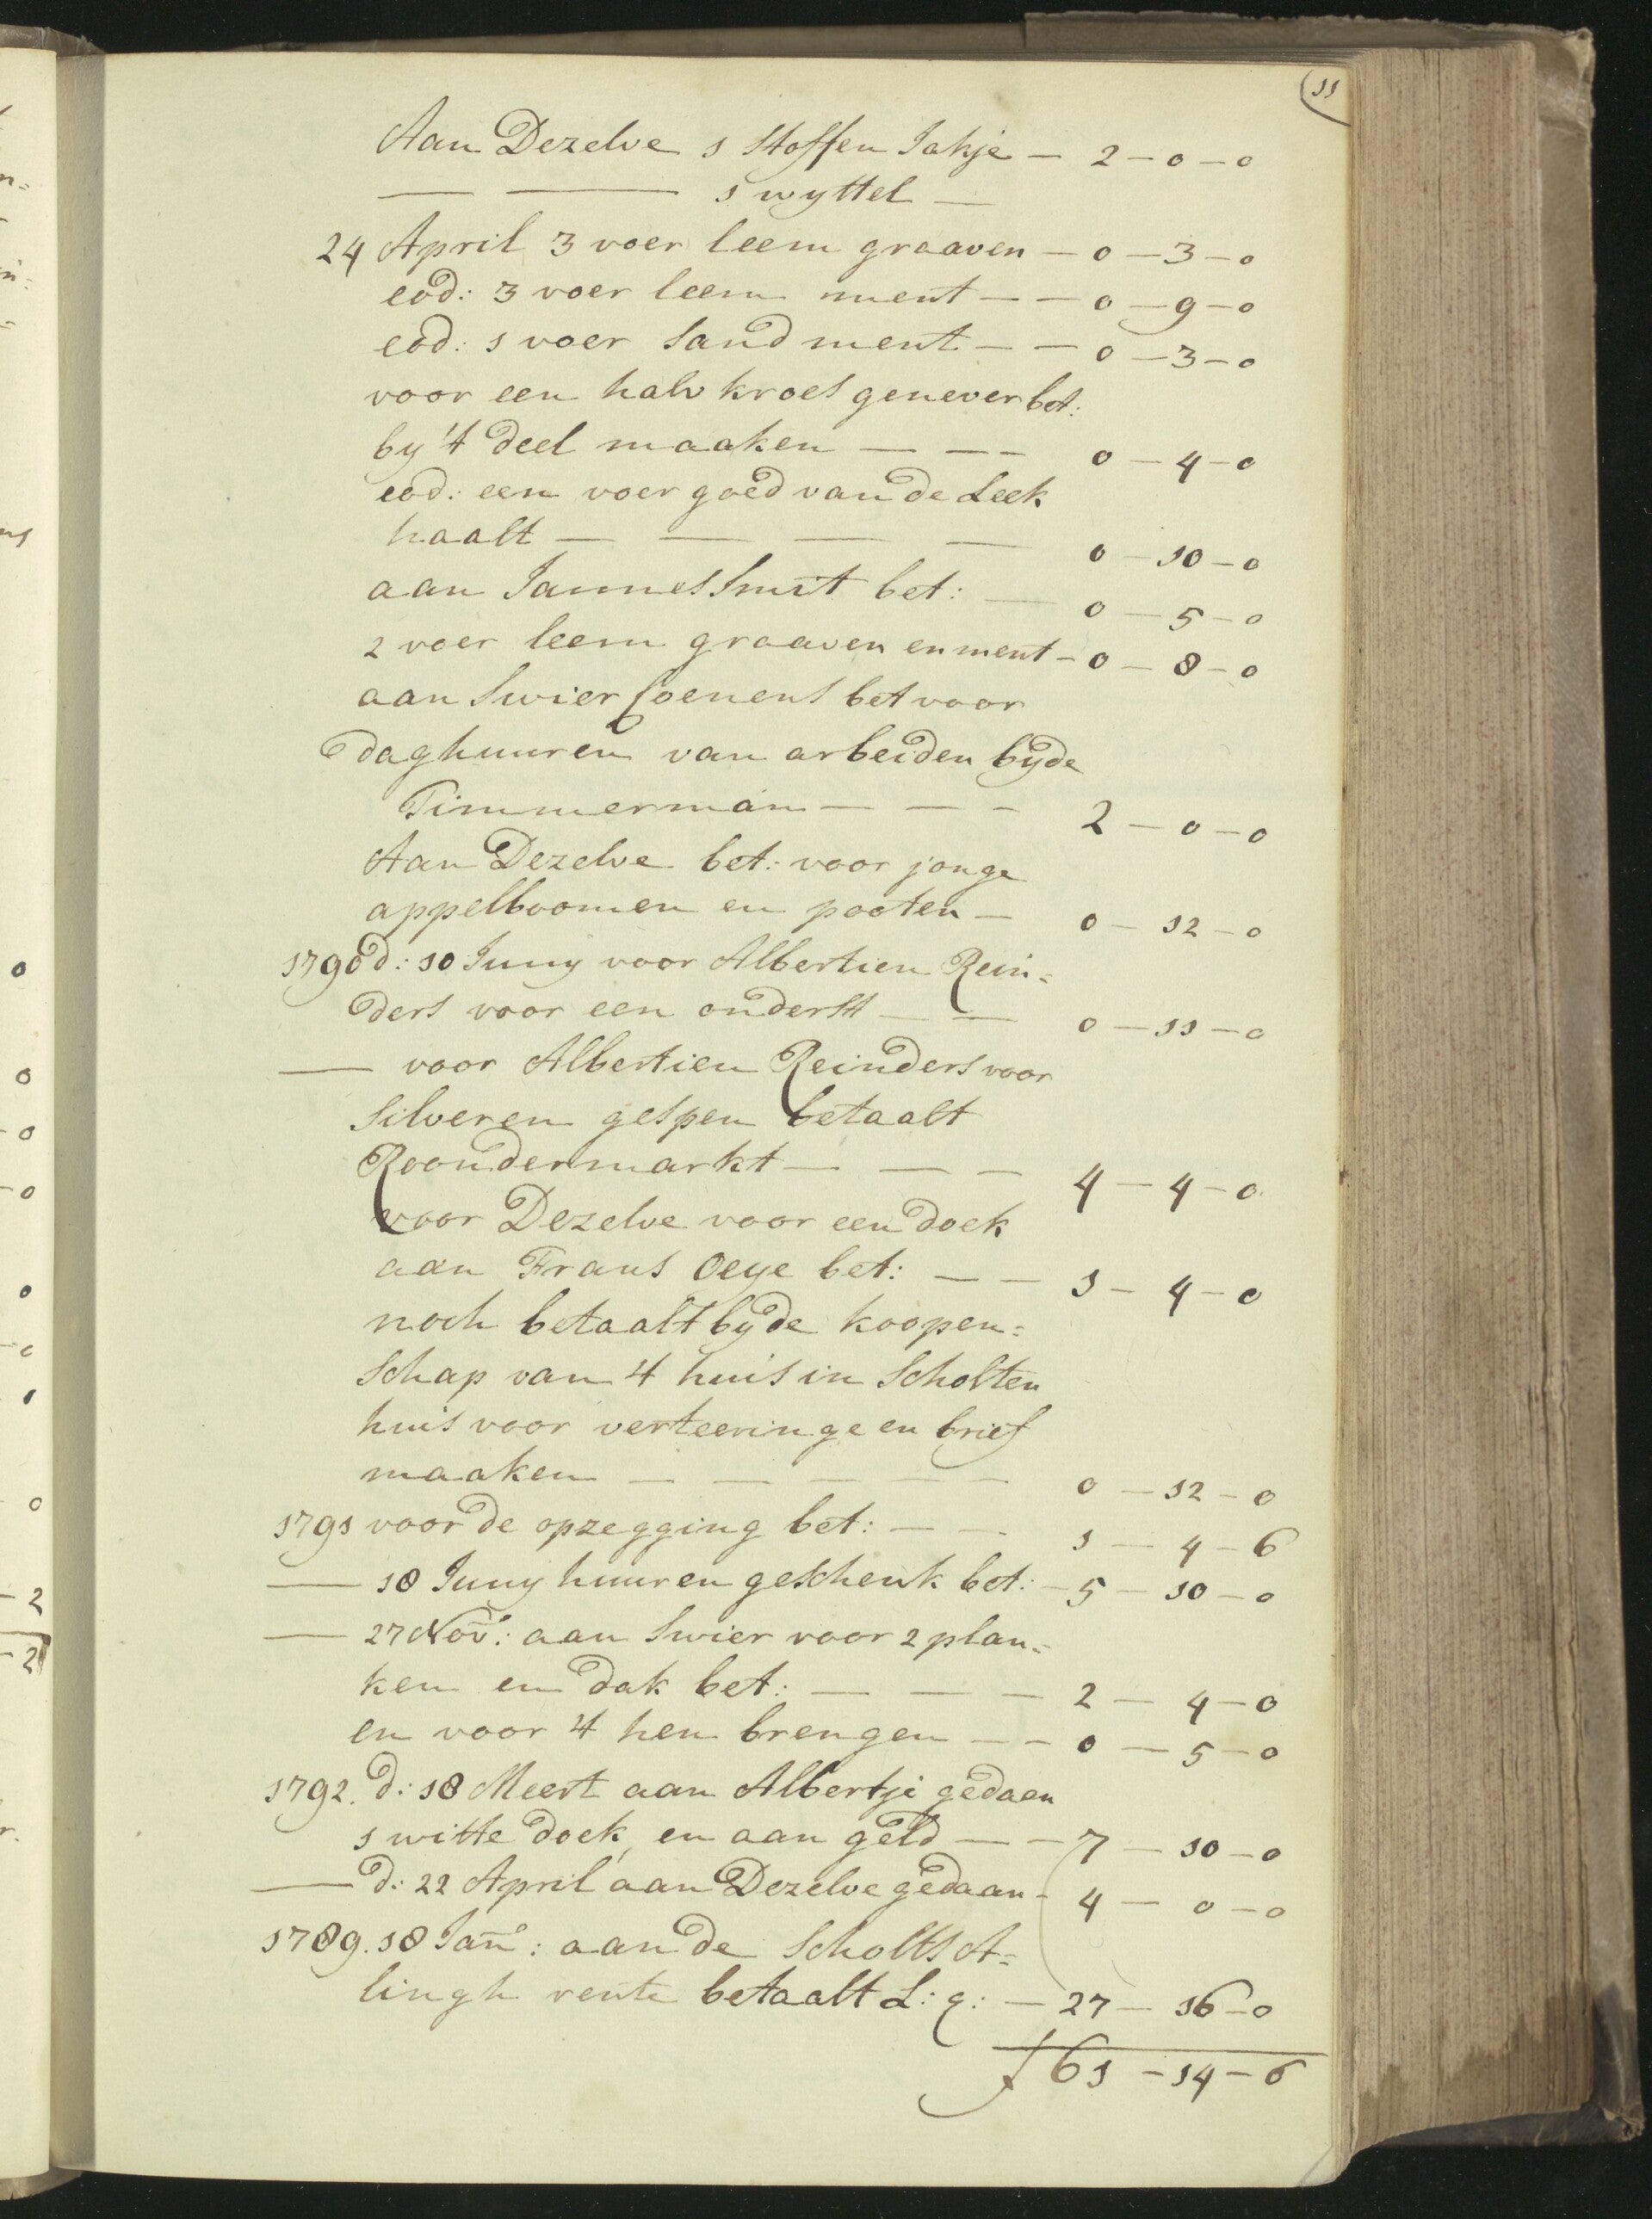 11
Aan Dezelve 1 Stoffen Jakje — 2 — 0 — 0
— — 1 wyttel —
24 April 3 voer leem graaven — 0 — 3 — 0
eod: 3 voer leem ment — — 0 — 9 — 0
eod: 1 voer Sand ment — — 0 — 3 — 0
voor een halv kroes genever bet:
by 't deel maaken — — — 0 — 4 — 0
eod: een voer goed van de Leek
haalt — — — — 0 — 10 — 0
aan Jannes Smit bet: — 0 — 5 — 0
2 voer leem graaven en ment — 0 — 8 — 0
aan Swier Coenens bet voor
daghuuren van arbeiden by de
Timmerman — — — 2 — 0 — 0
Aan Dezelve bet: voor jonge
appelboomen en pooten — 0 — 12 — 0
1790 d: 10 Juny voor Albertien Rein=
ders voor een onderst — — 0 — 11 — 0
— voor Albertien Reinders voor
Silveren gespen betaalt
Roondermarkt — — — 4 — 4 — 0
voor Dezelve voor een doek
aan Frans Oeye bet: — — 1 — 4 — 0
noch betaalt by de koopen=
Schap van 't huis in Scholten
huis voor verteeringe en brief
maaken — — — — — 0 — 12 — 0
1791 voor de opzegging bet: — — 1 — 4 — 6
— 18 Juny huur en geschenk bet: — 5 — 10 — 0
— 27 Nov: aan Swier voor 2 plan=
ken en dak bet: — — — 2 — 4 — 0
en voor 't hen brengen — — 0 — 5 — 0
1792. d: 18 Meert aan Albertje gedaen
1 witte doek, en aan geld — — 7 — 10 — 0
— d: 22 April aan Dezelve gedaan — 4 — 0 — 0
1789. 18 Jan: aan de Scholts A=
lingh rente betaalt L: q: — 27 — 16 — 0
f 61 — 14 — 6